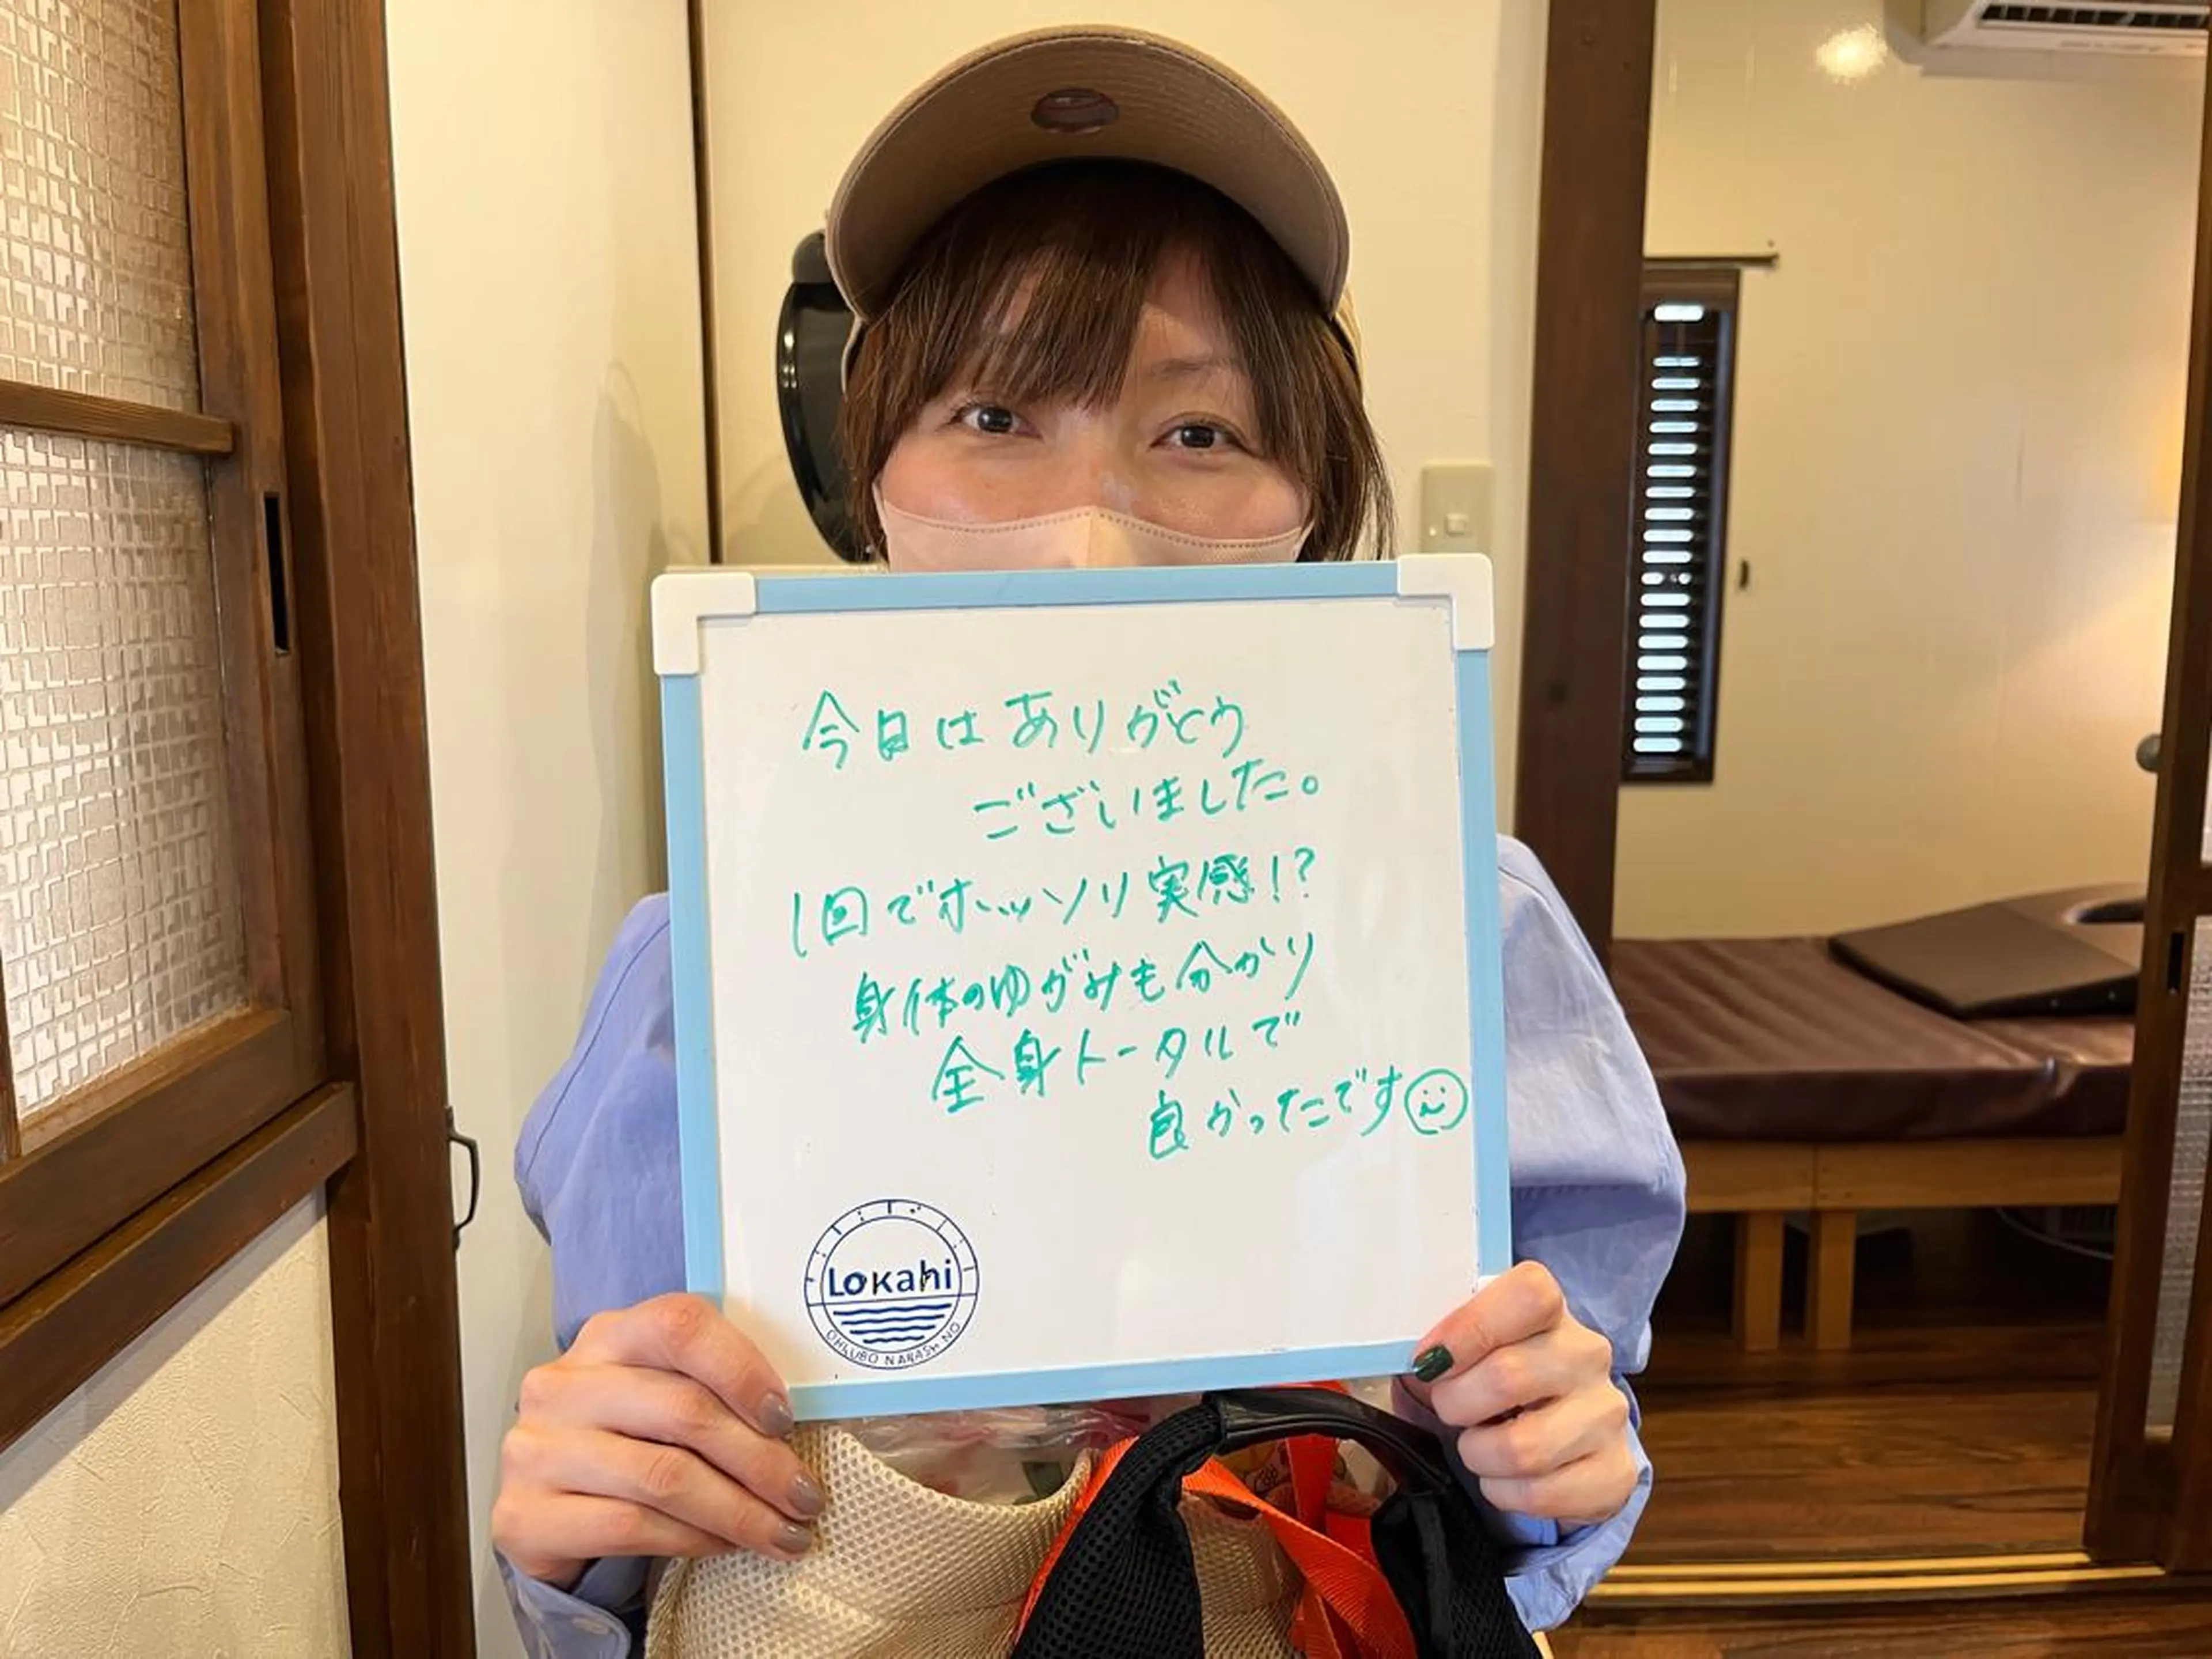 今日はありがとう
ございました。
1回でホッソリ実感!?
身体のゆがみも分かり
全身トータルで
良かったです
Lokahi
OHKUBO NARASHINO